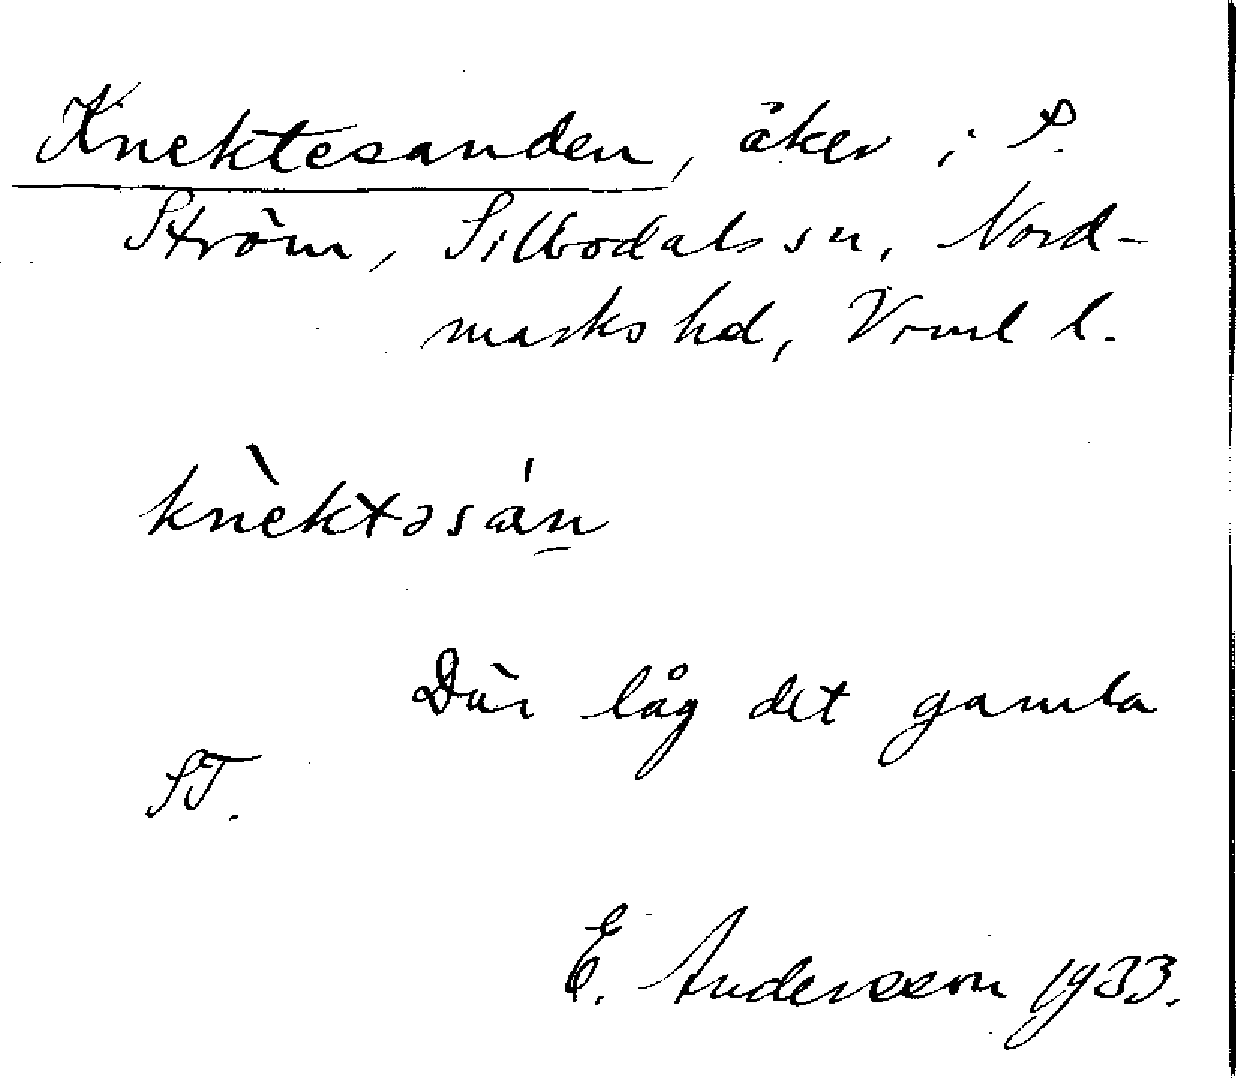 Knektesanden, åker i S.
Ström, Silbodals sn, Nord-
marks hd, Vrml l.
knèktəsán̠
Där låg det gamla
ST.
E. Andersson 1933.